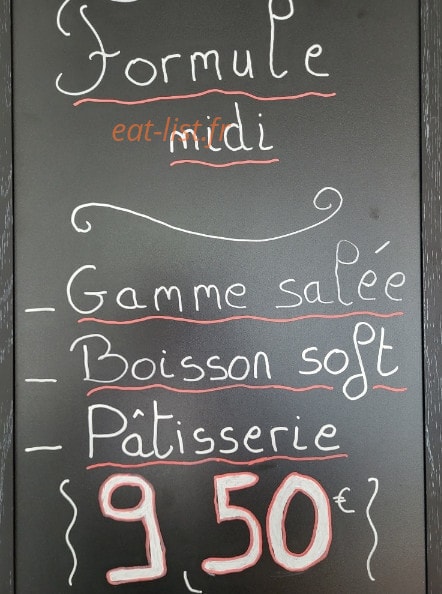 Formule
eat-list.fr
midi
- Gamme salée
- Boisson soft
- Pâtisserie
{ 9,50€ }